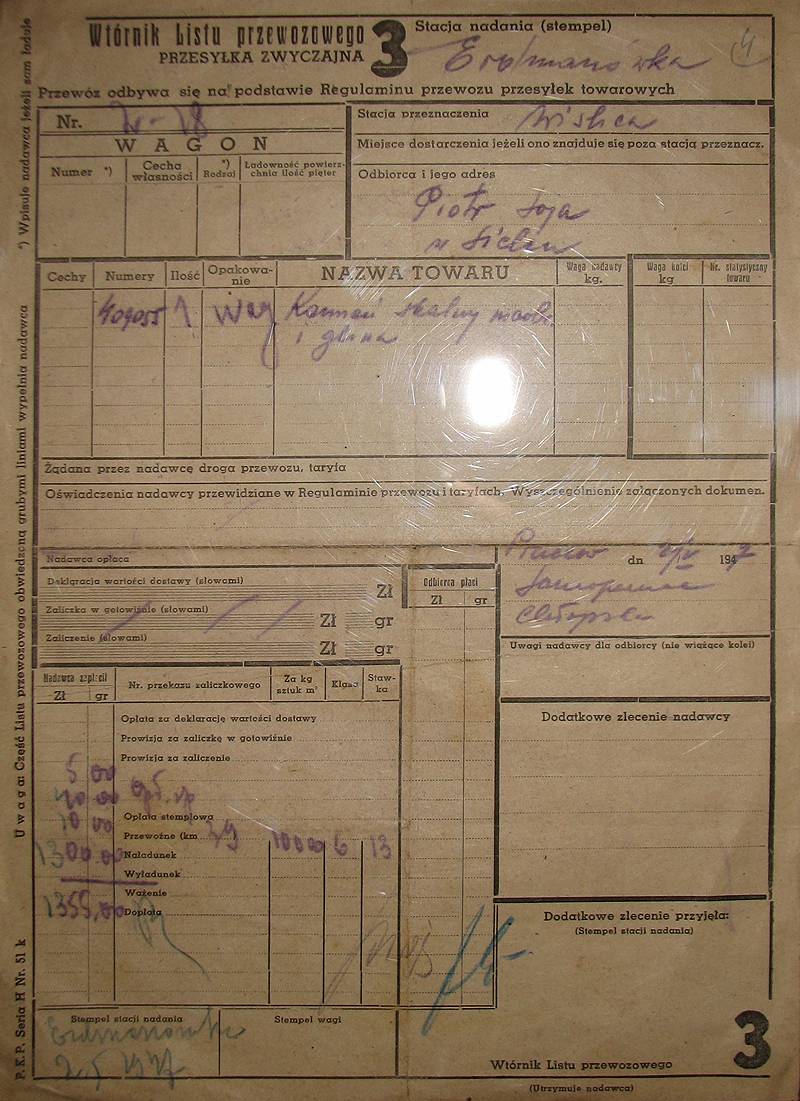 Wtórnik Listu przewozowego
PRZESYŁKA ZWYCZAJNA
3
Stacja nadania (stempel)
4
Przewóz odbywa się na podstawie Regulaminu przewozu przesyłek towarowych
Nr.
WAGON
Numer *)
Cecha własności
*) Rodzaj
Ładowność powierzchnia ilość pięter
Stacja przeznaczenia
Wislica
Miejsce dostarczenia jeżeli ono znajduje się poza stacją przeznacz.
Odbiorca i jego adres
Piotr Soja
Cechy
Numery
Ilość
Opakowanie
NAZWA TOWARU
Waga nadawcy kg.
Waga kolei kg
Nr. statystyczny towaru
409055 1 Wag Kamień skalny
i glina
Żądana przez nadawcę droga przewozu, taryfa
Oświadczenia nadawcy przewidziane w Regulaminie przewozu i taryfach, Wyszczególnienie załączonych dokumen.
Nadawca opłaca
Deklaracja wartości dostawy (słowami)
Zł
Zaliczka w gotowiźnie (słowami)
Zł gr
Zaliczenie (słowami)
Zł gr
Odbiorca płaci
Zł gr
dn 1947
Samopomoc
Chłopska
Uwagi nadawcy dla odbiorcy (nie wiążące kolei)
Nadawca zapłacił
Zł gr
Nr. przekazu zaliczkowego
Za kg sztuk m³
Klasa
Stawka
Opłata za deklarację wartości dostawy
Prowizja za zaliczkę w gotowiźnie
Prowizja za zaliczenie
5 00
40 00
10 00 Opłata stemplowa
Przewoźne (km 79) 10000 6 13
1300 00 Naładunek
Wyładunek
Ważenie
1355,00 Dopłata
Dodatkowe zlecenie nadawcy
Dodatkowe zlecenie przyjęła:
(Stempel stacji nadania)
Stempel stacji nadania
Stempel wagi
2.5 1947
Wtórnik Listu przewozowego
3
(Otrzymuje nadawca)
*) Wpisuje nadawca jeżeli sam ładuje
Uwaga: Część Listu przewozowego obwiedzioną grubymi liniami wypełnia nadawca
P.K.P. Seria H Nr. 51 k